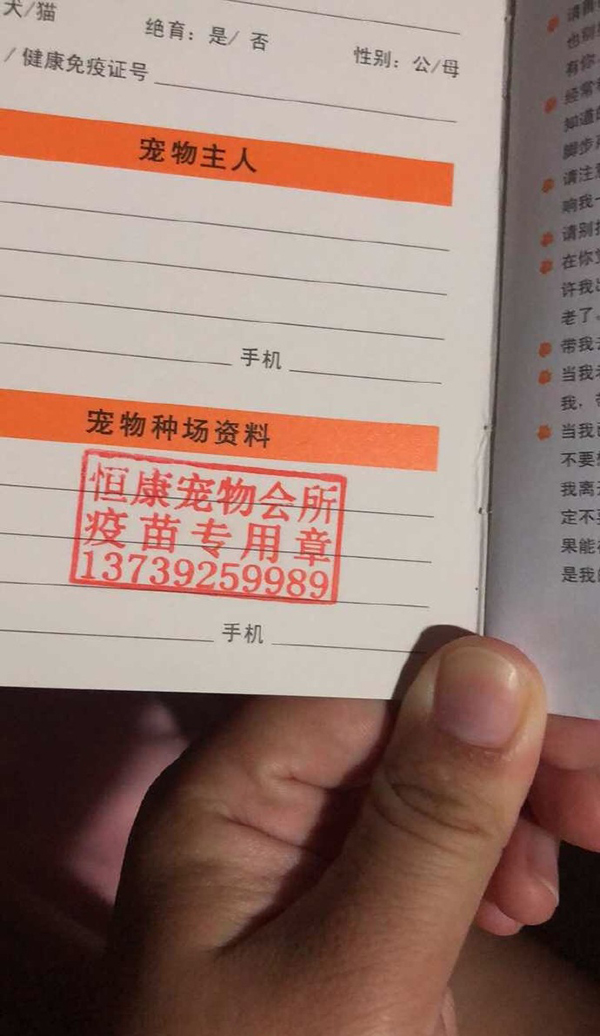 犬/猫
绝育：是/ 否
性别：公/母
/ 健康免疫证号
宠物主人
手机
宠物种场资料
恒康宠物会所
疫苗专用章
13739259989
手机
也别
有你
经常
知道的
脚步
请注意
响我一
请别
许我
老了。
带我
当我
我，
当我已
不要
我离
定不
果能
是我的